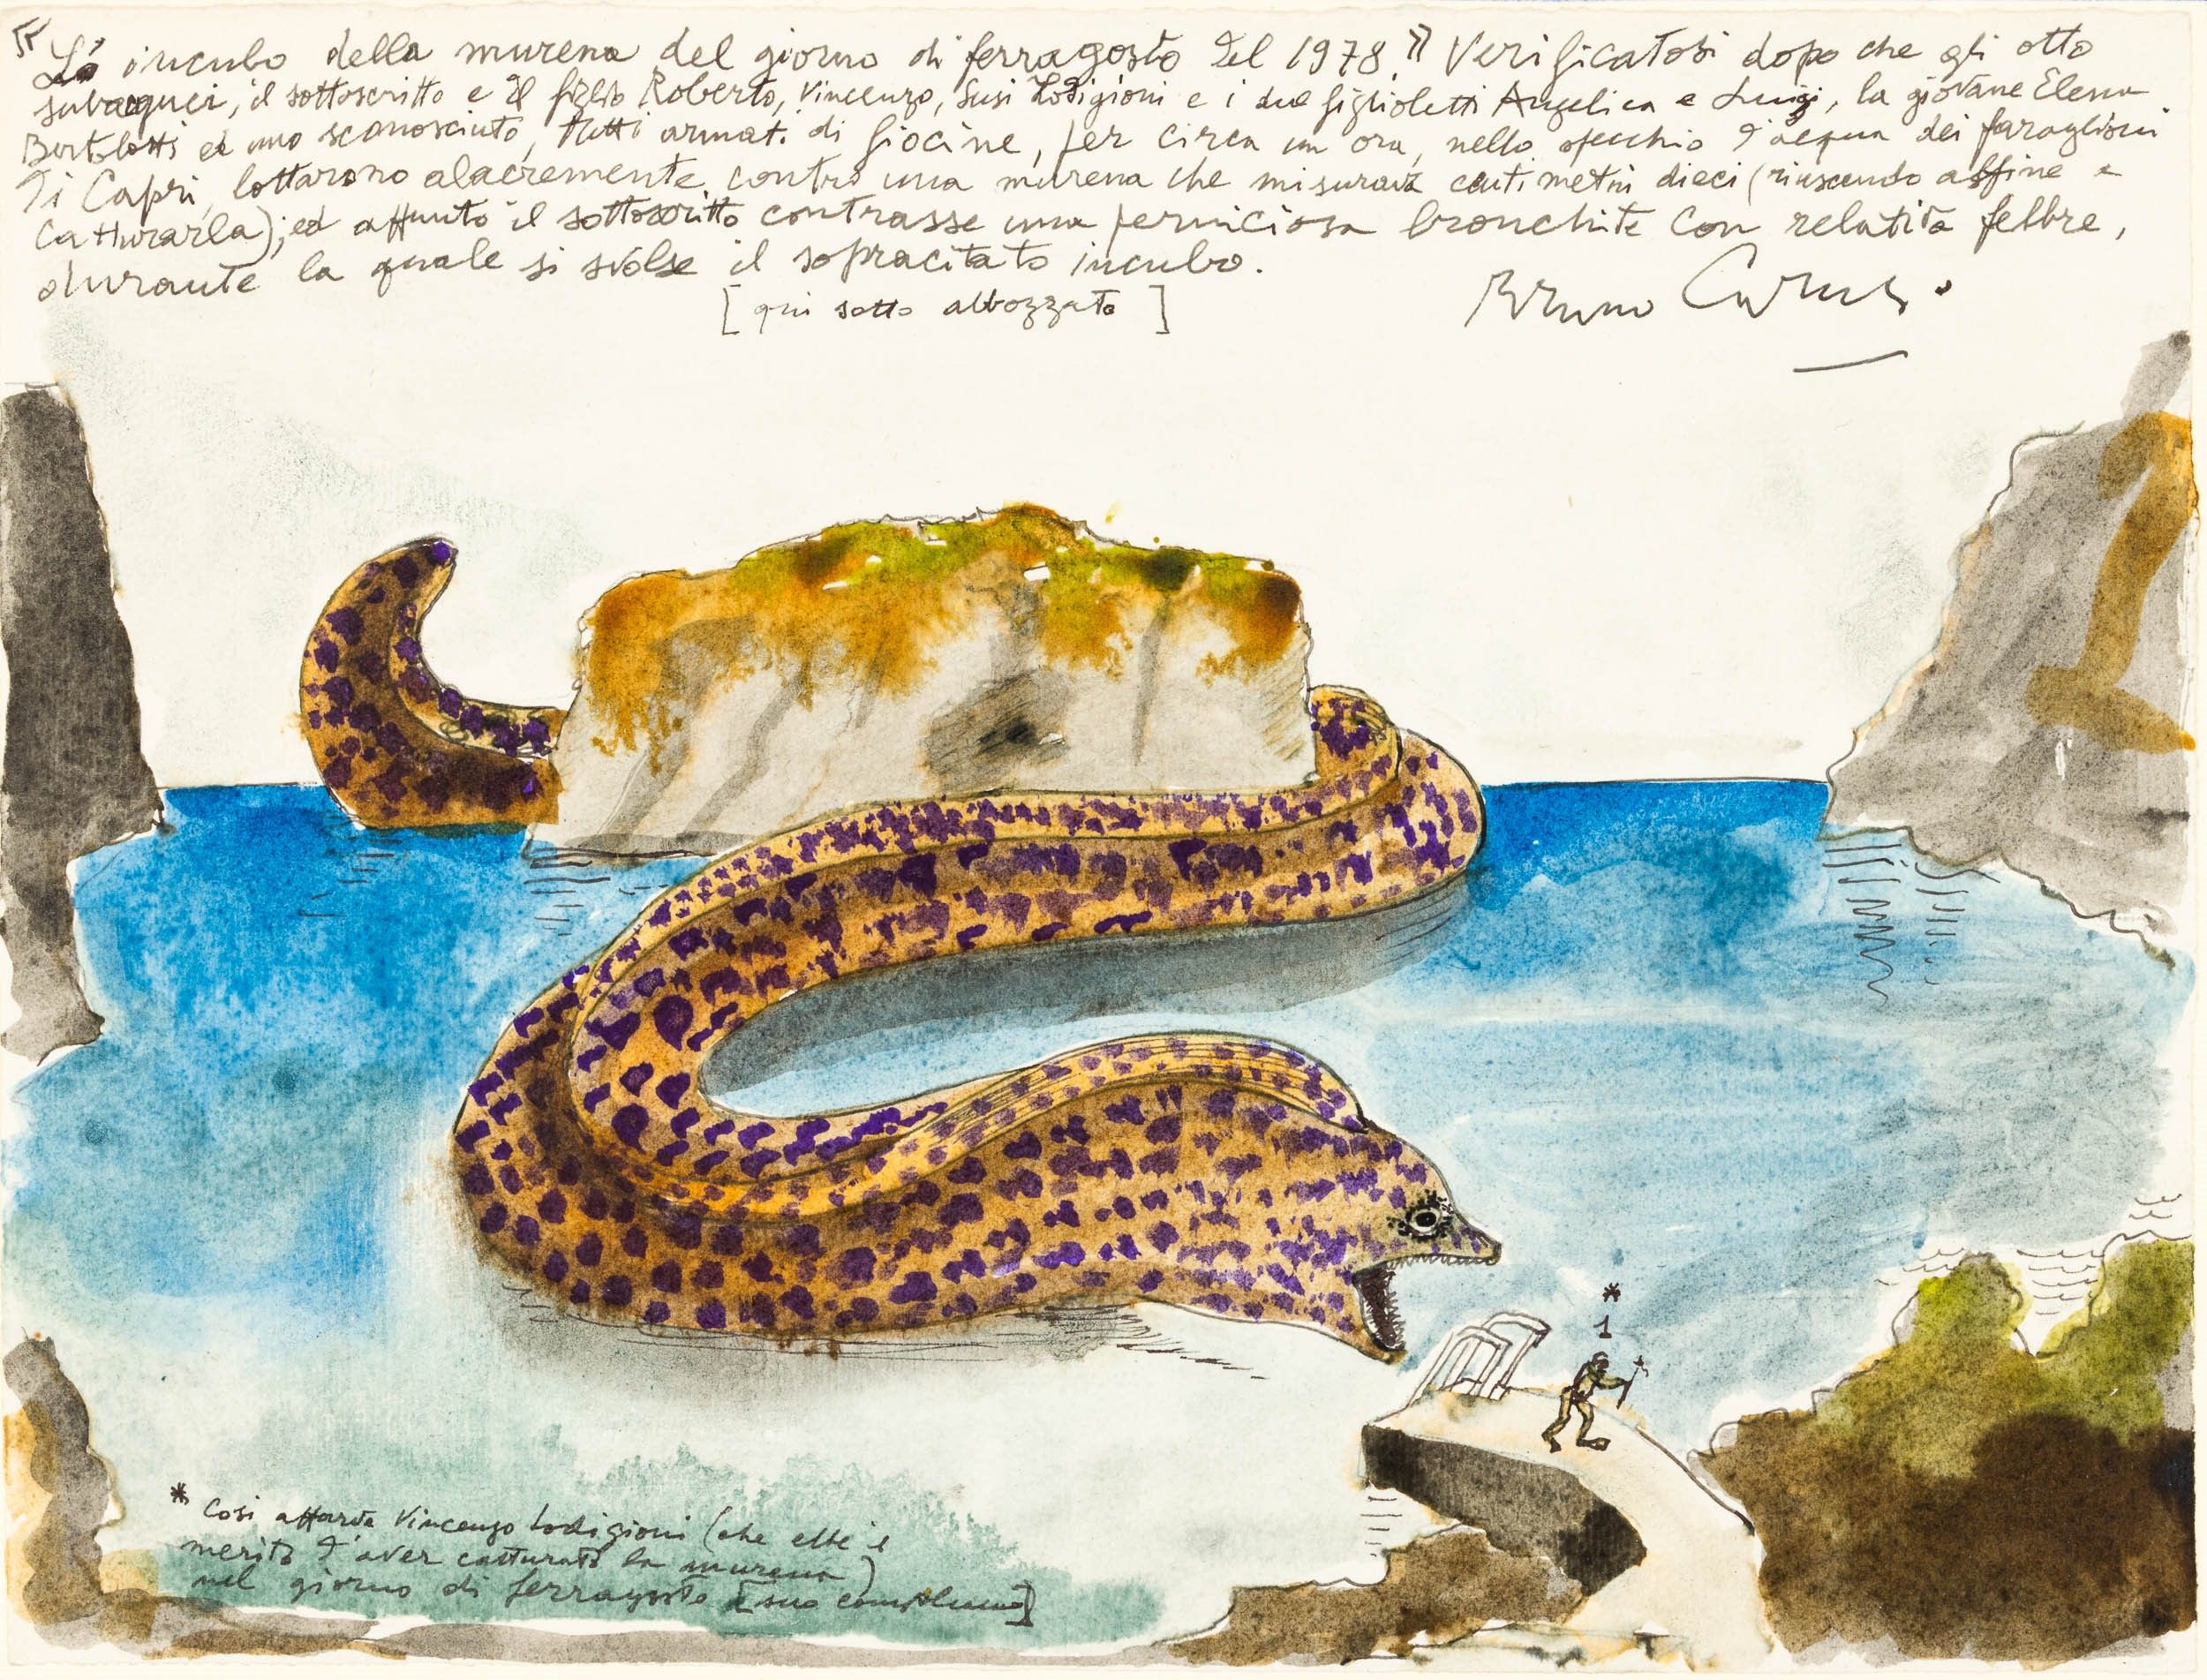 "Lo incubo della murena del giorno di ferragosto del 1978." Verificatosi dopo che gli otto
subacquei, il sottoscritto e il figlio Roberto, Vincenzo, Susi Lodigioni e i due figlioletti Angelica e Luigi, la giovane Elena
Bortolotti ed uno sconosciuto, tutti armati di fiocine, per circa un ora, nello specchio d'acqua dei faraglioni
di Capri, lottarono alacremente contro una murena che misurava centimetri dieci (riuscendo affine a
catturarla); ed appunto il sottoscritto contrasse una perniciosa bronchite con relativa febbre,
durante la quale si svolse il sopracitato incubo.
[qui sotto abbozzato]
Bruno Caruso.
*
1
* Così appariva Vincenzo Lodigioni (che ebbe il
merito d'aver catturato la murena)
nel giorno di ferragosto [suo compleanno]